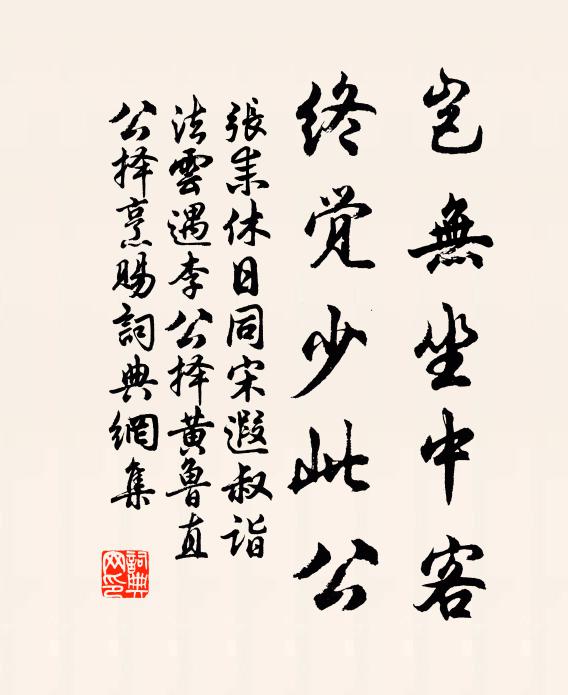 岂無坐中客
終觉少此公
張耒休日同宋遐叔詣
法雲遇李公择黄魯直
公择烹賜詞典網集
詞典
网印